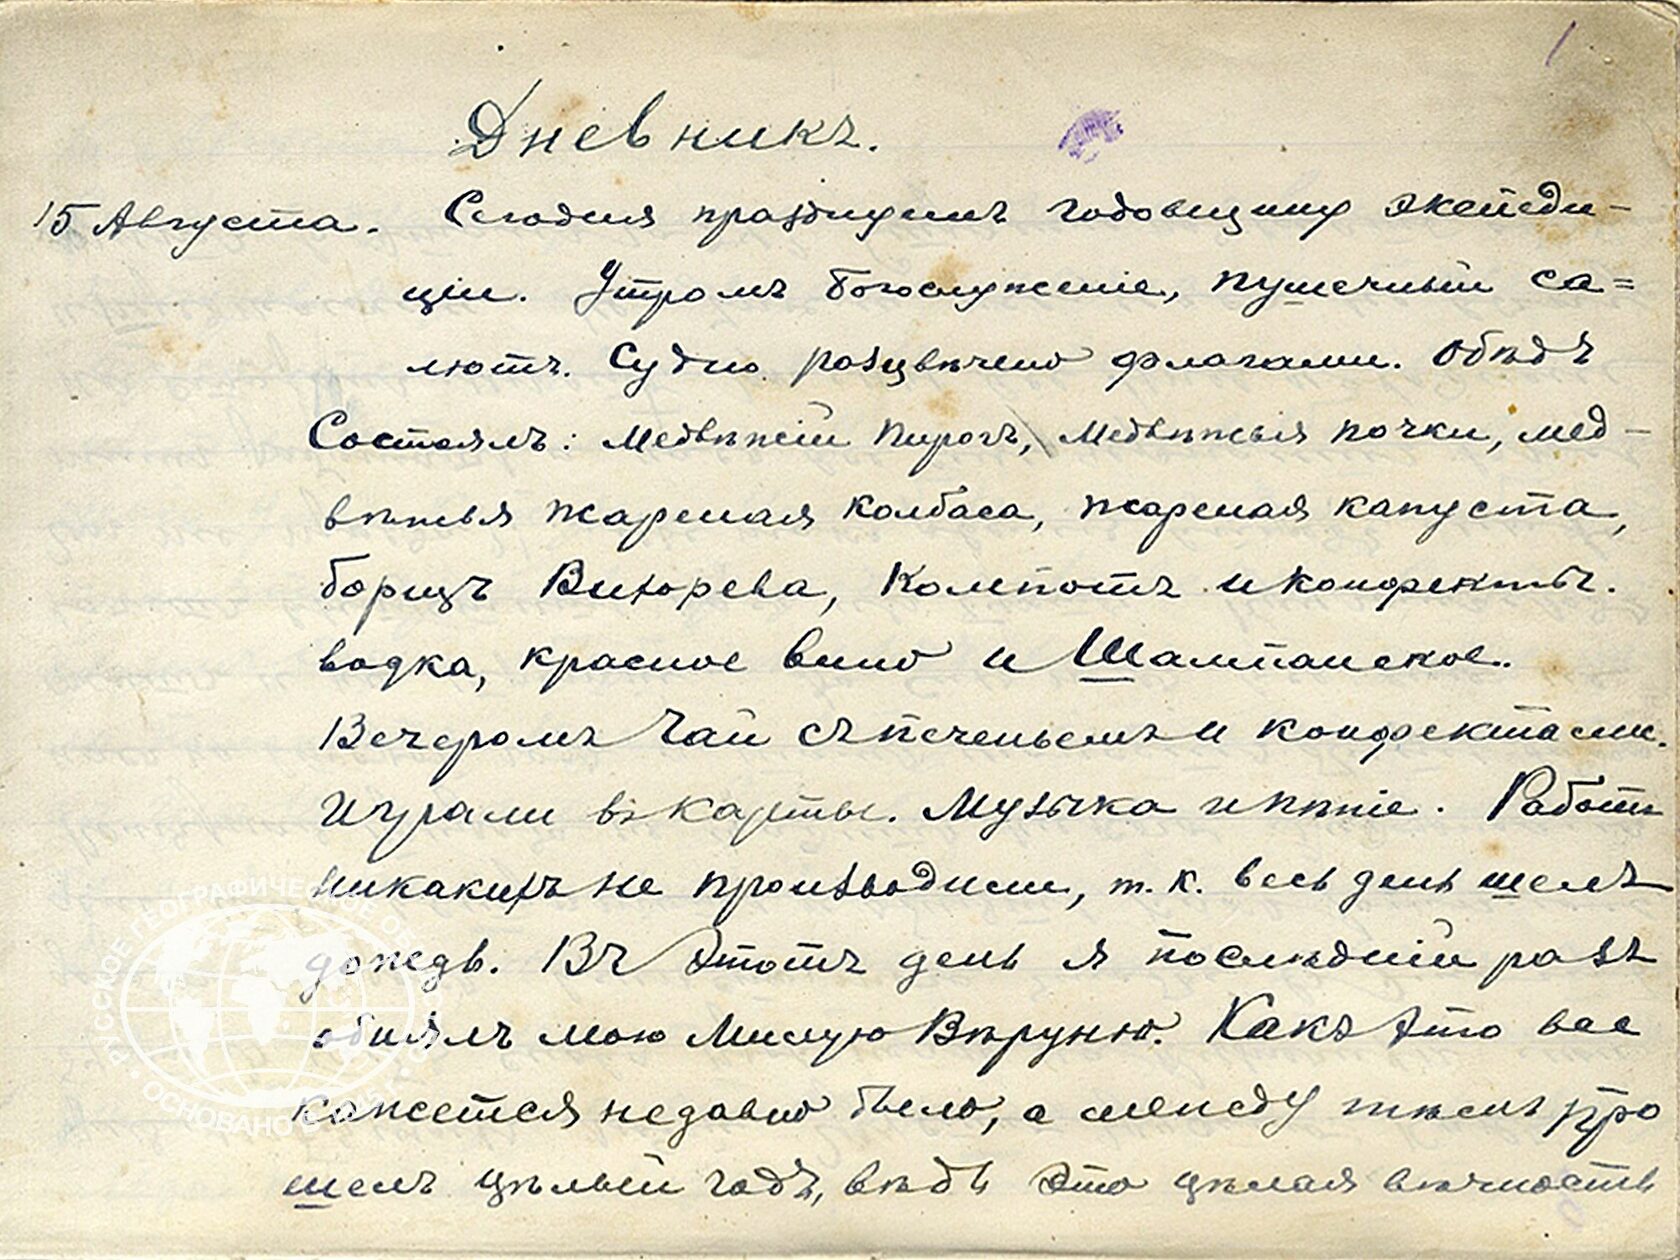 1
Дневникъ.
15 Августа. Сегодня празднуемъ годовщину экспеди-
ціи. Утромъ богослуженіе, пушечный са=
лютъ. Судно разцвѣчено флагами. Обѣдъ
Состоялъ: Медвѣжій пирогъ, Медвѣжья почки, мед-
вѣжья жареная колбаса, жареная капуста,
борщъ Вихорева, Компотъ и конфекты.
водка, красное вино и Шампанское.
Вечеромъ Чай съ печеньемъ и конфектами.
Играли въ карты. Музыка и пѣніе. Работъ
никакихъ не производили, т. к. весь день шелъ
дождь. Въ этотъ день я послѣдній разъ
обнялъ мою Милую Вѣруню. Какъ это все
кажется недавно было, а между тѣмъ про
шелъ цѣлый годъ, вѣдь это цѣлая вѣчность
РУССКОЕ ГЕОГРАФИЧЕСКОЕ
ОСНОВАНО В